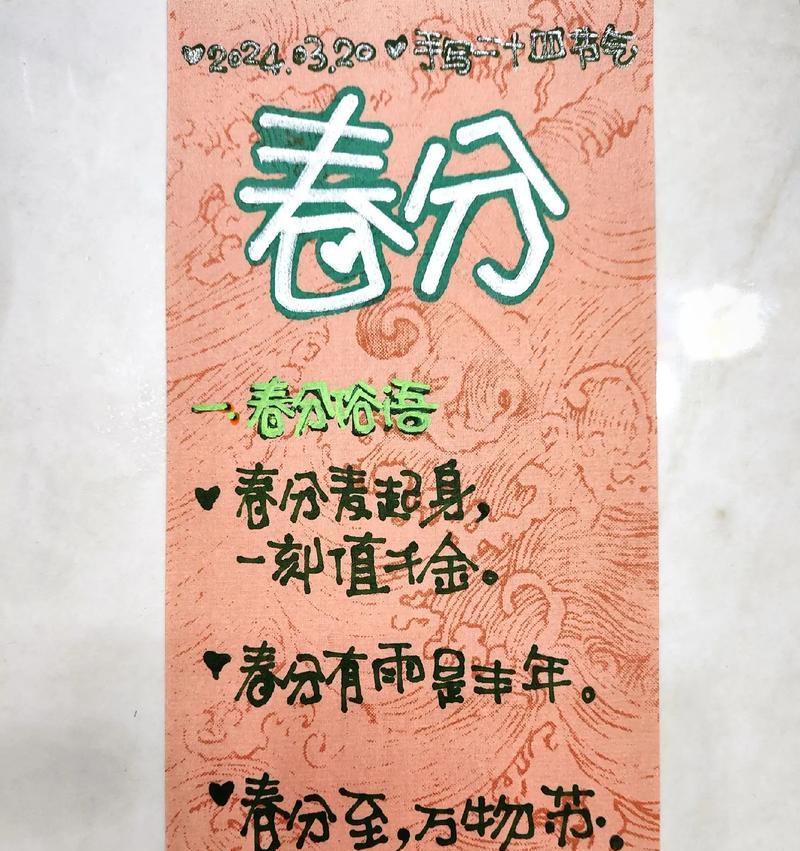 ♥2024.03.20♥手写二十四节气
春分
一、春分俗语
♥春分麦起身，
一刻值千金。
♥春分有雨是丰年。
♥春分至，万物苏。